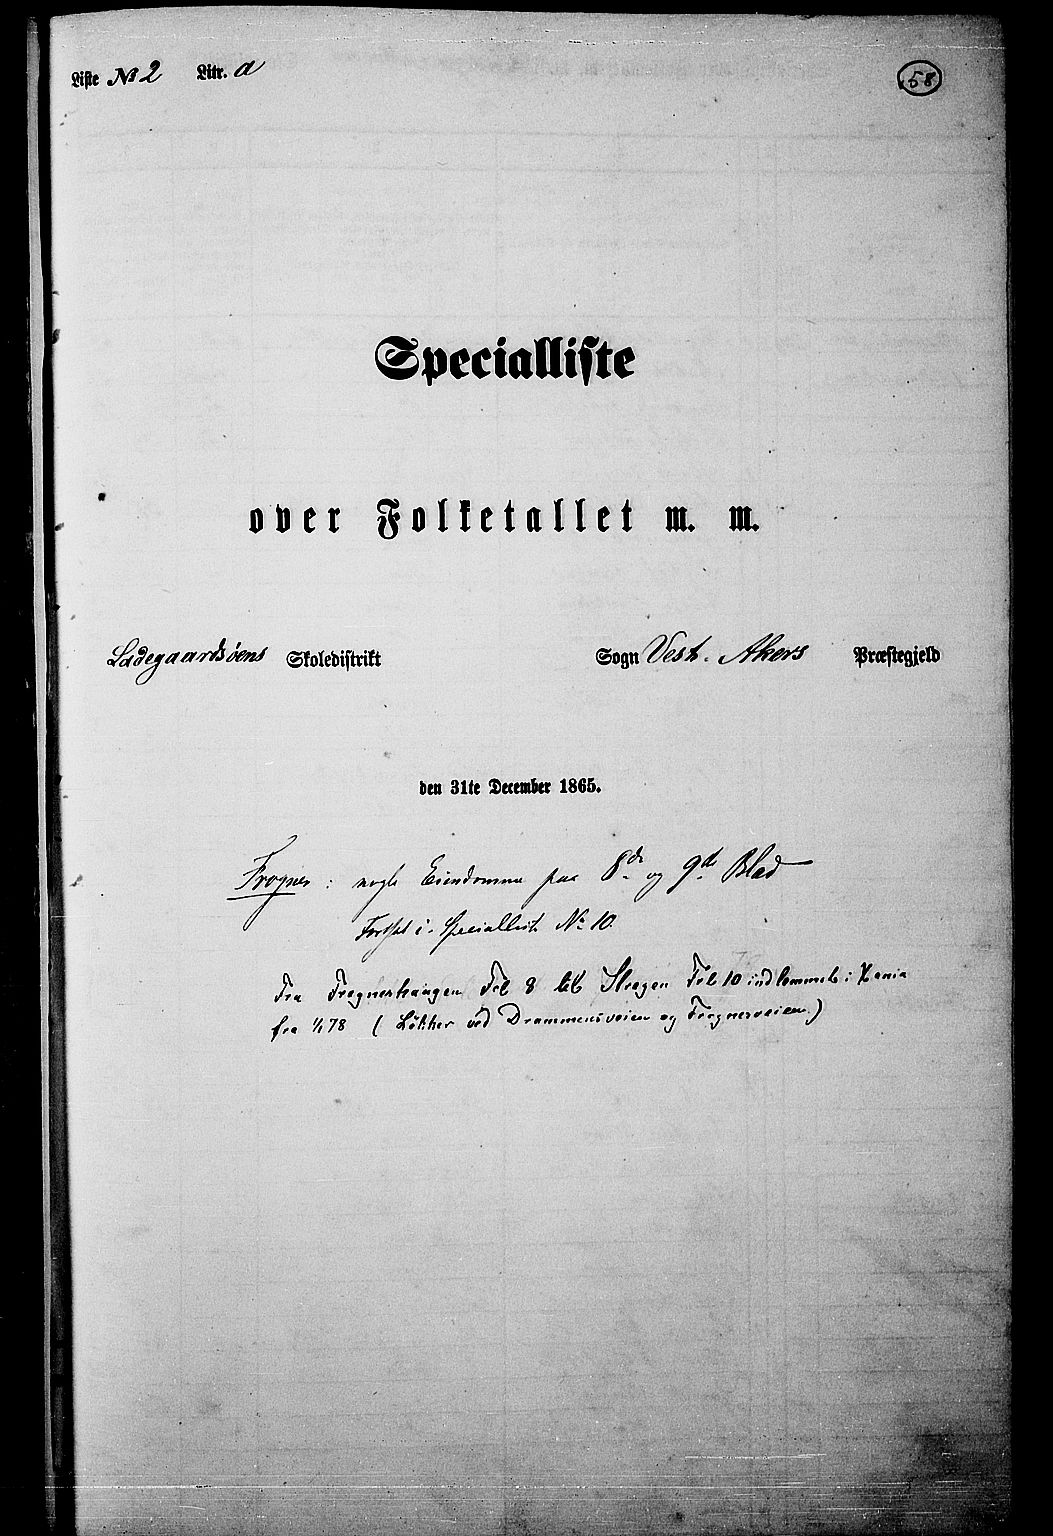 Liste No 2 Litr. a 58
Specialliste
over Folketallet m. m.
Ladegaardsøens Skoledistrikt Sogn Vest-Akers Præstegjeld
den 31te December 1865.
Frogner: nogle Eiendomme paa 8de og 9de Blad
Fortsat i Speciallist No 10.
Fra Frognerhaugen Fol 8 til Skogen Fol 10 indlemmet i Xania
fra 1/1 78 (Løkker ved Drammensveien og Frognerveien.)